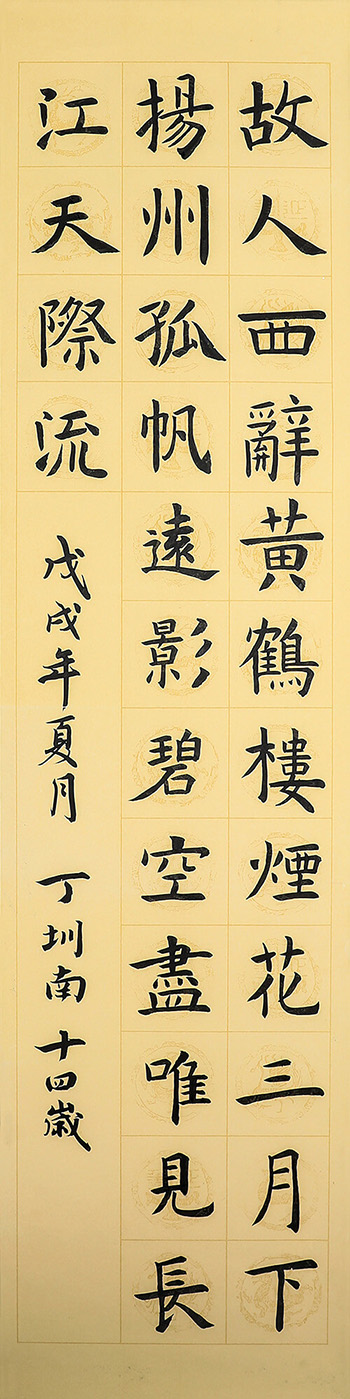 故人西辭黃鶴樓煙花三月下
揚州孤帆遠影碧空盡唯見長
江天際流
戊戌年夏月 丁圳南 十四歲